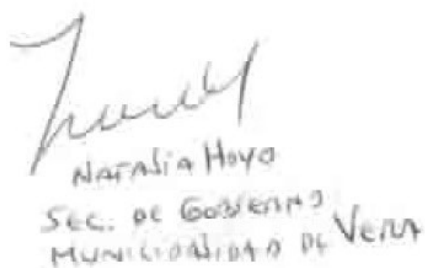 Natalia Hoyo
Sec. de Gobierno
Municipalidad de Vera